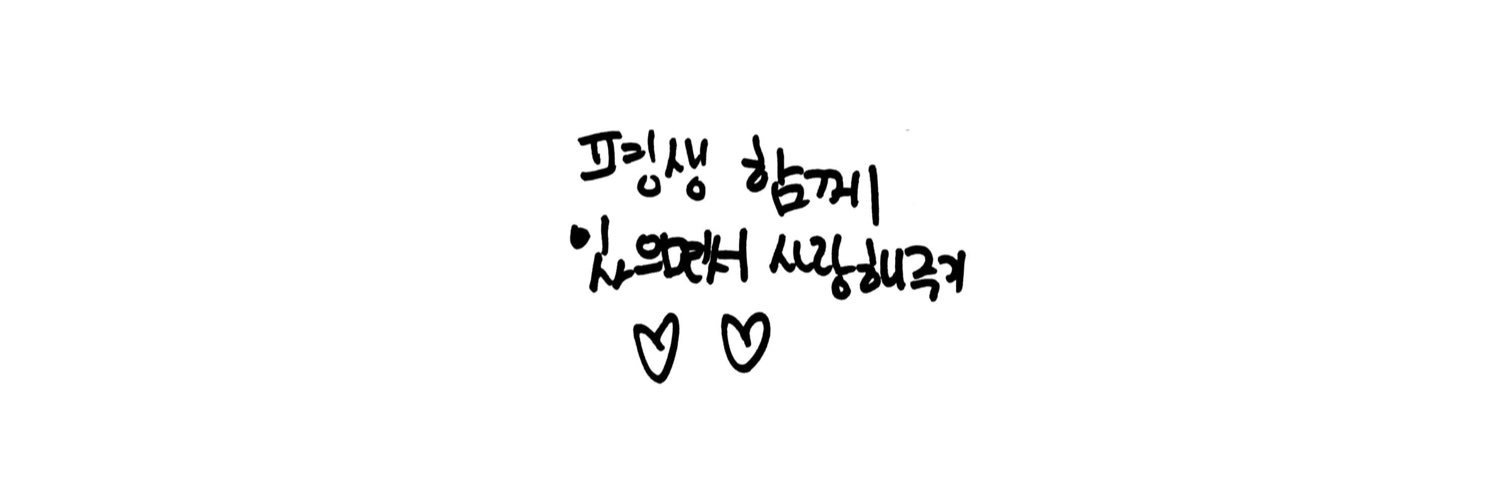 평생 함께
있으면서 사랑해주기
♡ ♡